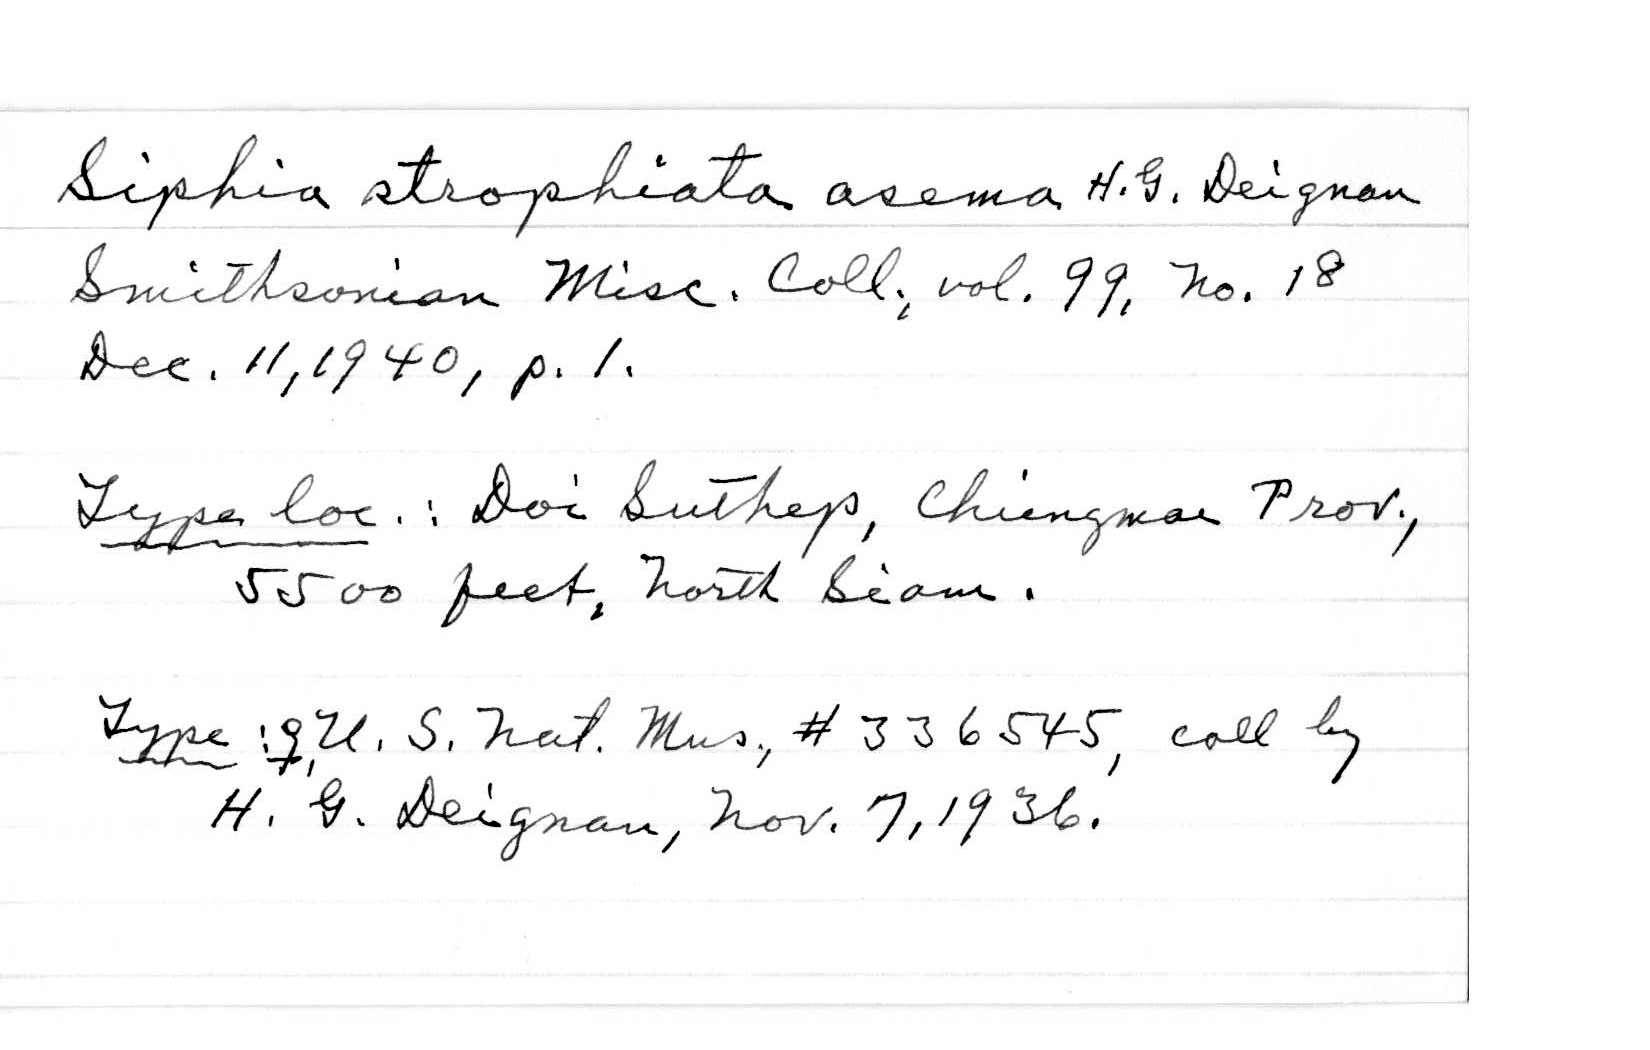 Siphia strophiata asema H. G. Deignan
Smithsonian Misc. Coll., vol. 99, No. 18
Dec. 11, 1940, p. 1.
Type loc. : Doi Suthep, Chiengmai Prov.,
5500 feet, North Siam.
Type : ♀, U. S. Nat. Mus., # 336545, coll by
H. G. Deignan, Nov. 7, 1936.